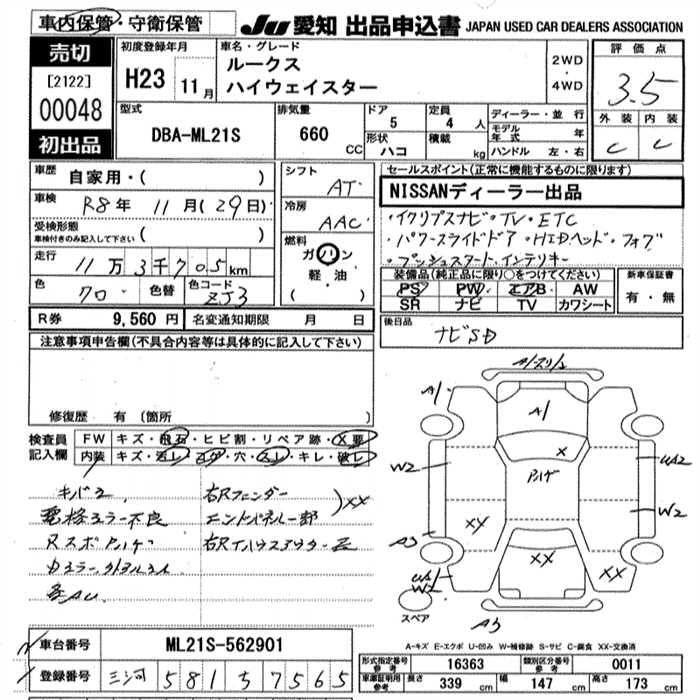 車内保管・守衛保管
JU 愛知 出品申込書 JAPAN USED CAR DEALERS ASSOCIATION
売切
[2122]
00048
初出品
初度登録年月
H23 11月
車名・グレード
ルークス
ハイウェイスター
2WD
・
4WD
評価点
3.5
外装 内装
C C
型式
DBA-ML21S
排気量
660 CC
ドア
5
定員
4 人
形状
ハコ
積載
kg
ディーラー・並行
モデル年式 年
ハンドル 左・右
車歴
自家用・( )
車検 R8年 11月(29日)
受検形態
車検付きのみ記入して下さい ( )
走行 11万3千705km
色 クロ 色替 色コード ZJ3
R券 9,560円 名変通知期限 月 日
シフト
AT
冷房
AAC
燃料
ガソリン
軽・油
( )
セールスポイント(正常に機能するものに限る)
NISSANディーラー出品
・イクリプスナビ・TV・ETC
・パワースライドドア・HIDヘッド・フォグ
・プッシュスタート・インテリキー
装備品(純正品に限り○をつけてください)
PS PW エアB AW
SR ナビ TV カワシート
新車保証書
有・無
後日品
ナビSD
注意事項申告欄(不具合内容等は具体的に記入して下さい)
修復歴 有(箇所 )
検査員記入欄
FW キズ・飛石・ヒビ割・リペア跡・X要
内装 キズ・汚レ・コゲ・穴・スレ・キレ・破レ
電格ミラー不良
右Rフェンダー
エンドパネル一部
XX
A1
A1
X
W2
W2
XX
A3
XX
XX
A3
スペア
A-キズ E-エクボ U-凹み W-補修跡 S-サビ C-腐食 XX-交換済
車台番号 ML21S-562901
登録番号 三河 581 ち 7565
形式指定番号参考 16363 類別区分番号参考 0011
車庫証明用参考 長さ 339cm 幅 147cm 高さ 173cm